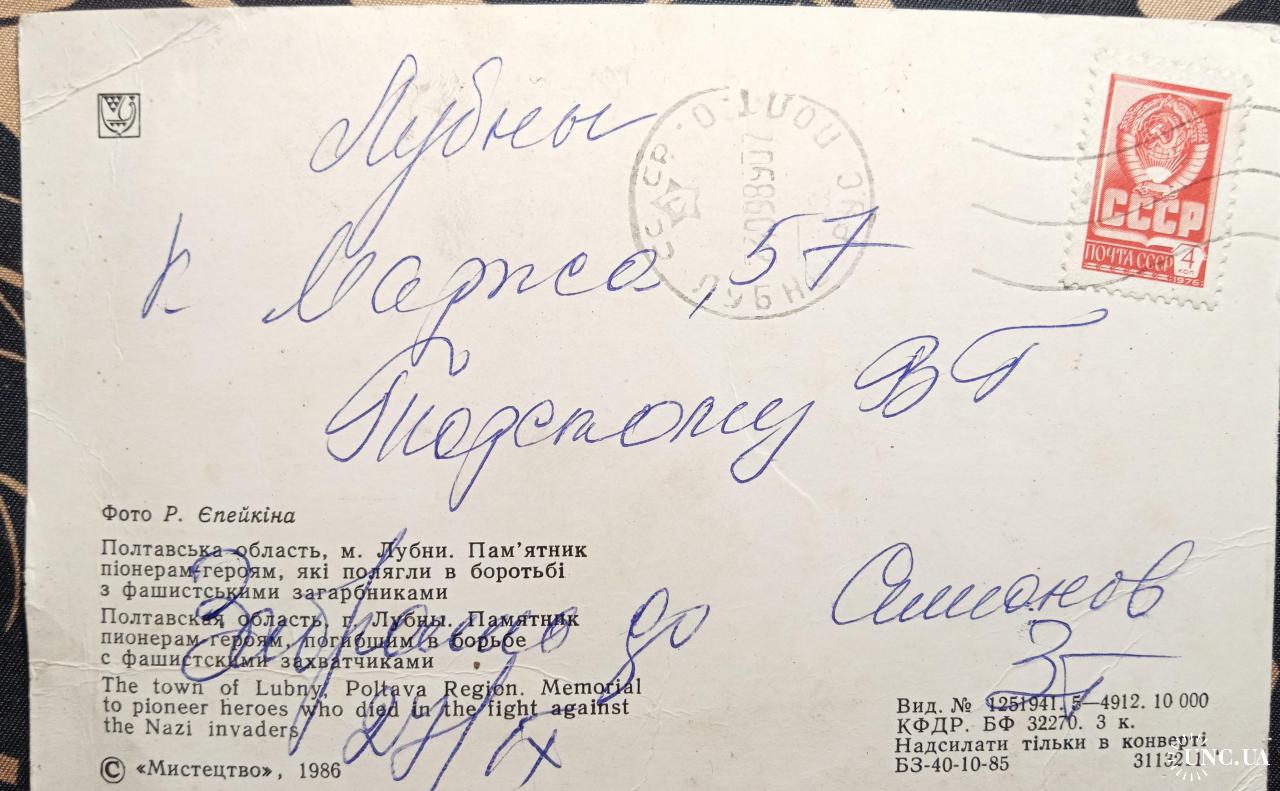 Лубны
К Маркса, 57
ВТ
СССР
ЛУБН
СССР
ПОЧТА СССР 4
КОП
1976
Фото Р. Єпейкіна
Полтавська область, м. Лубни. Пам'ятник
піонерам-героям, які полягли в боротьбі
з фашистськими загарбниками
Полтавская область, г. Лубны. Памятник
пионерам-героям, погибшим в борьбе
с фашистскими захватчиками
The town of Lubny, Poltava Region. Memorial
to pioneer heroes who died in the fight against
the Nazi invaders
© «Мистецтво», 1986
до
Вид. № 1251941. 5—4912. 10 000
КФДР. БФ 32270. 3 к.
Надсилати тільки в конверті
БЗ-40-10-85
UNC.UA